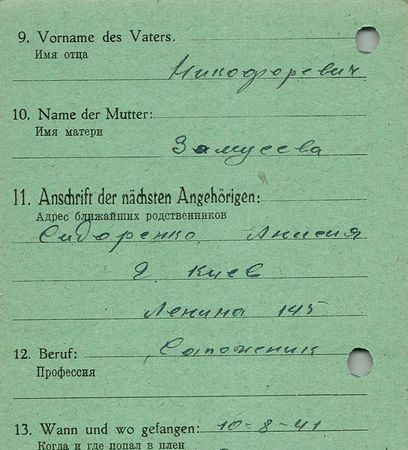 9. Vorname des Vaters.
Имя отца
Никофоревич
10. Name der Mutter:
Имя матери
Замусева
11. Anschrift der nächsten Angehörigen:
Адрес ближайших родственников
Сидоренко Анисия
г. Киев
Ленина 145
12. Beruf: Сапожник
Профессия
13. Wann und wo gefangen: 10-8-41
Когда и где попал в плен